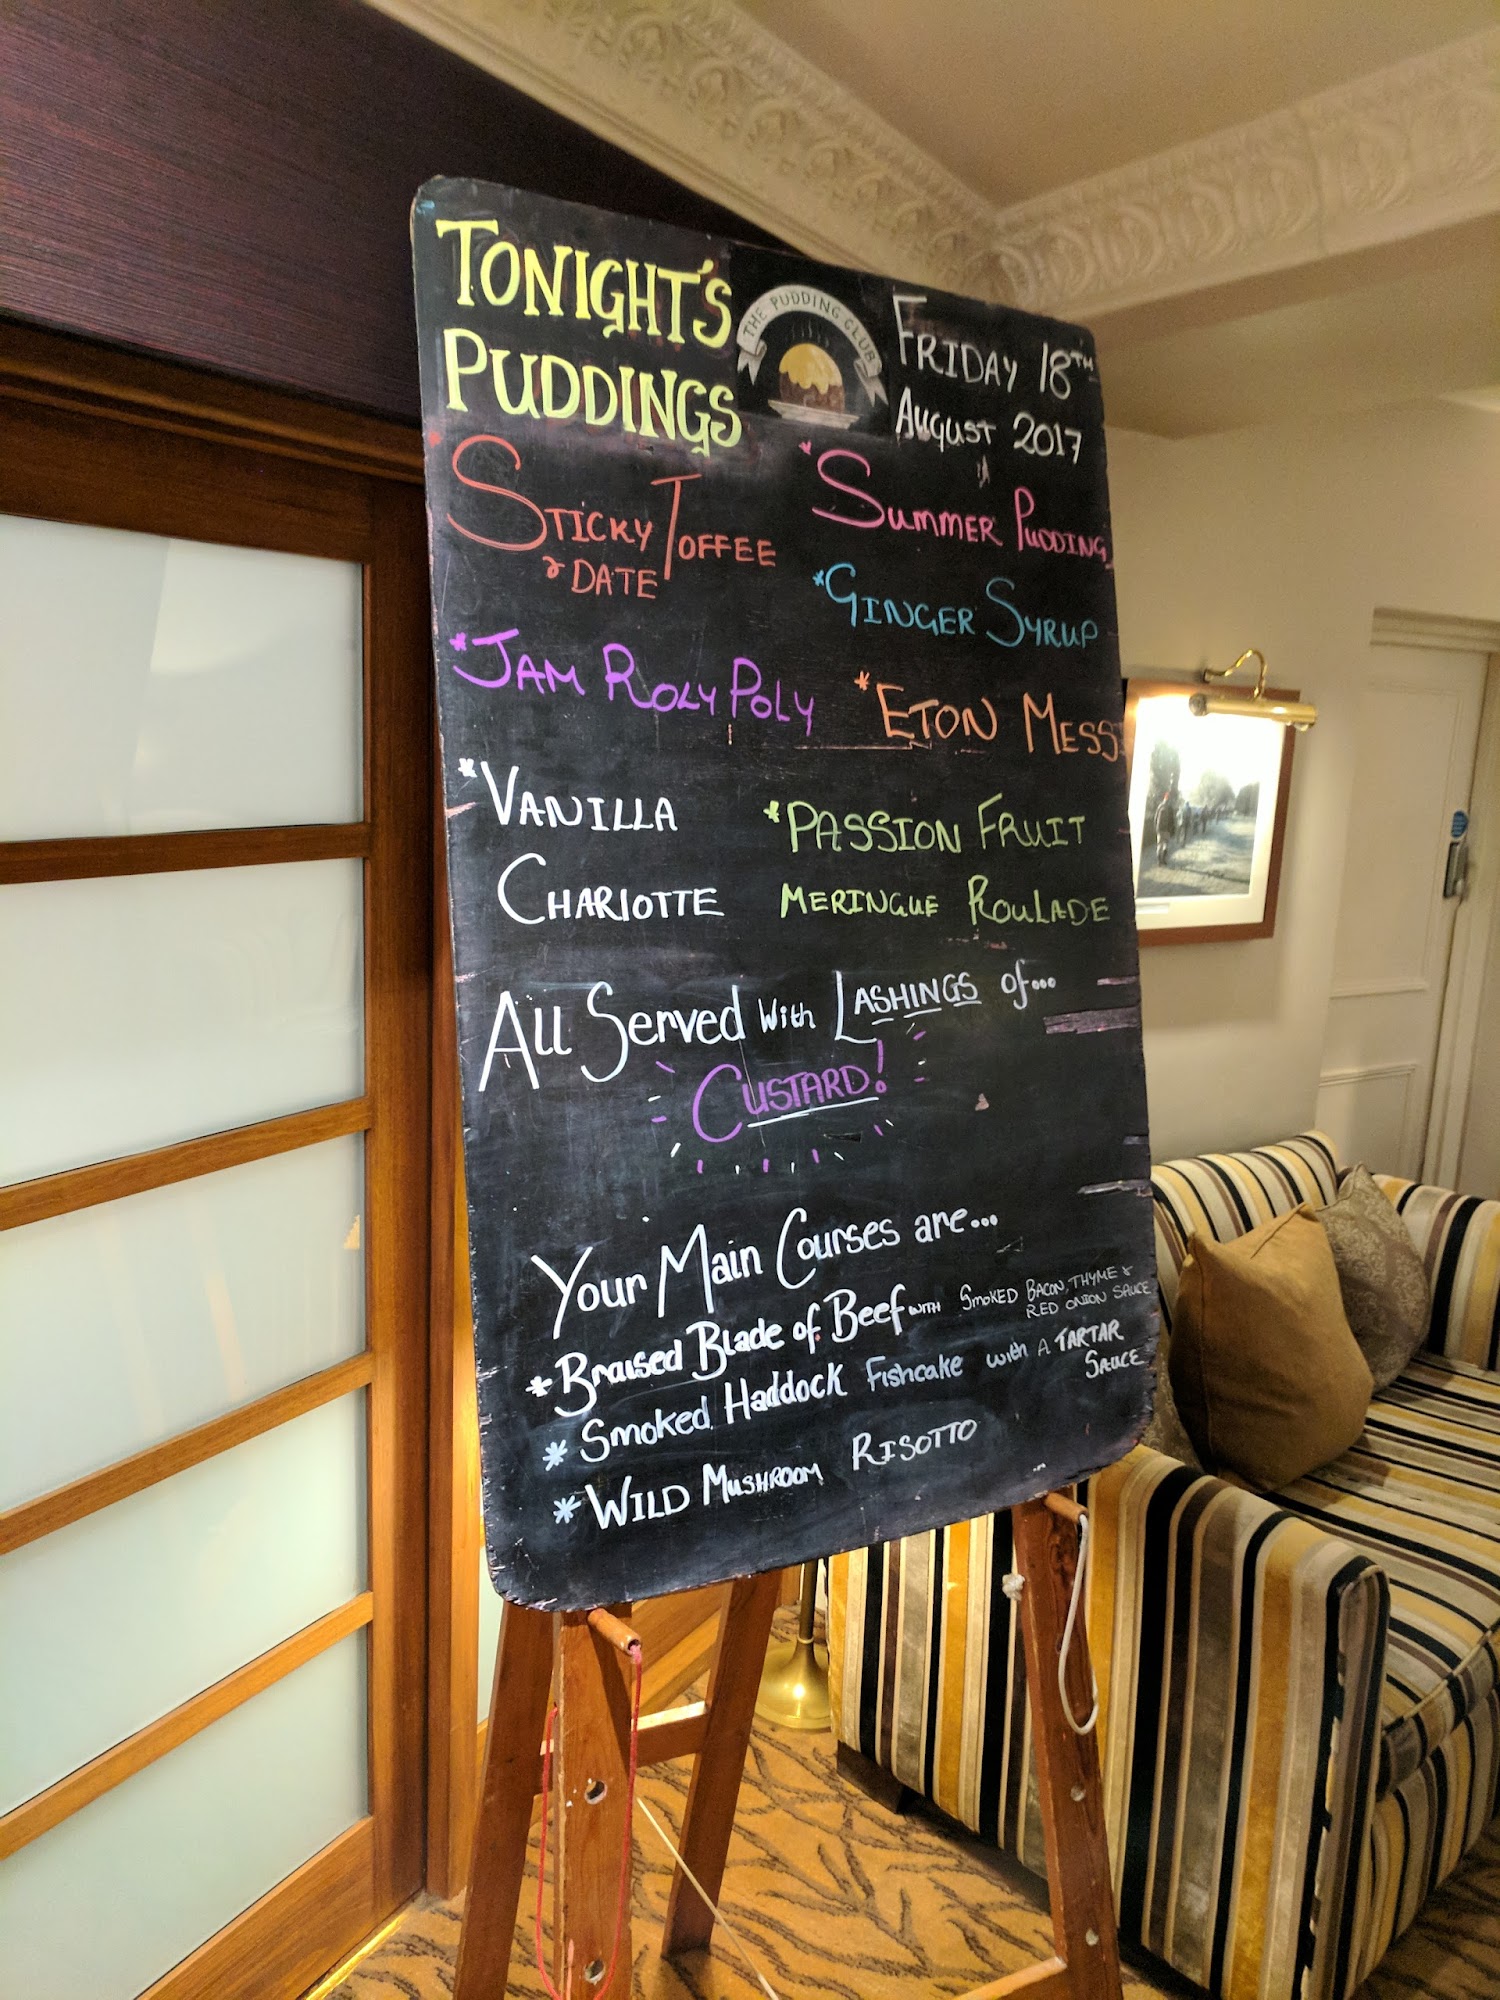 TONIGHT'S
PUDDINGS
THE PUDDING CLUB
FRIDAY 18TH
AUGUST 2017
* STICKY TOFFEE
& DATE
* SUMMER PUDDING
* GINGER SYRUP
* JAM ROLY POLY
* ETON MESS
* VANILLA
CHARLOTTE
* PASSION FRUIT
MERINGUE ROULADE
ALL SERVED With LASHINGS of...
CUSTARD!
Your Main Courses are...
* Braised Blade of Beef WITH SMOKED BACON, THYME &
RED ONION SAUCE
* Smoked Haddock Fishcake with A TARTAR
SAUCE
* WILD MUSHROOM RISOTTO